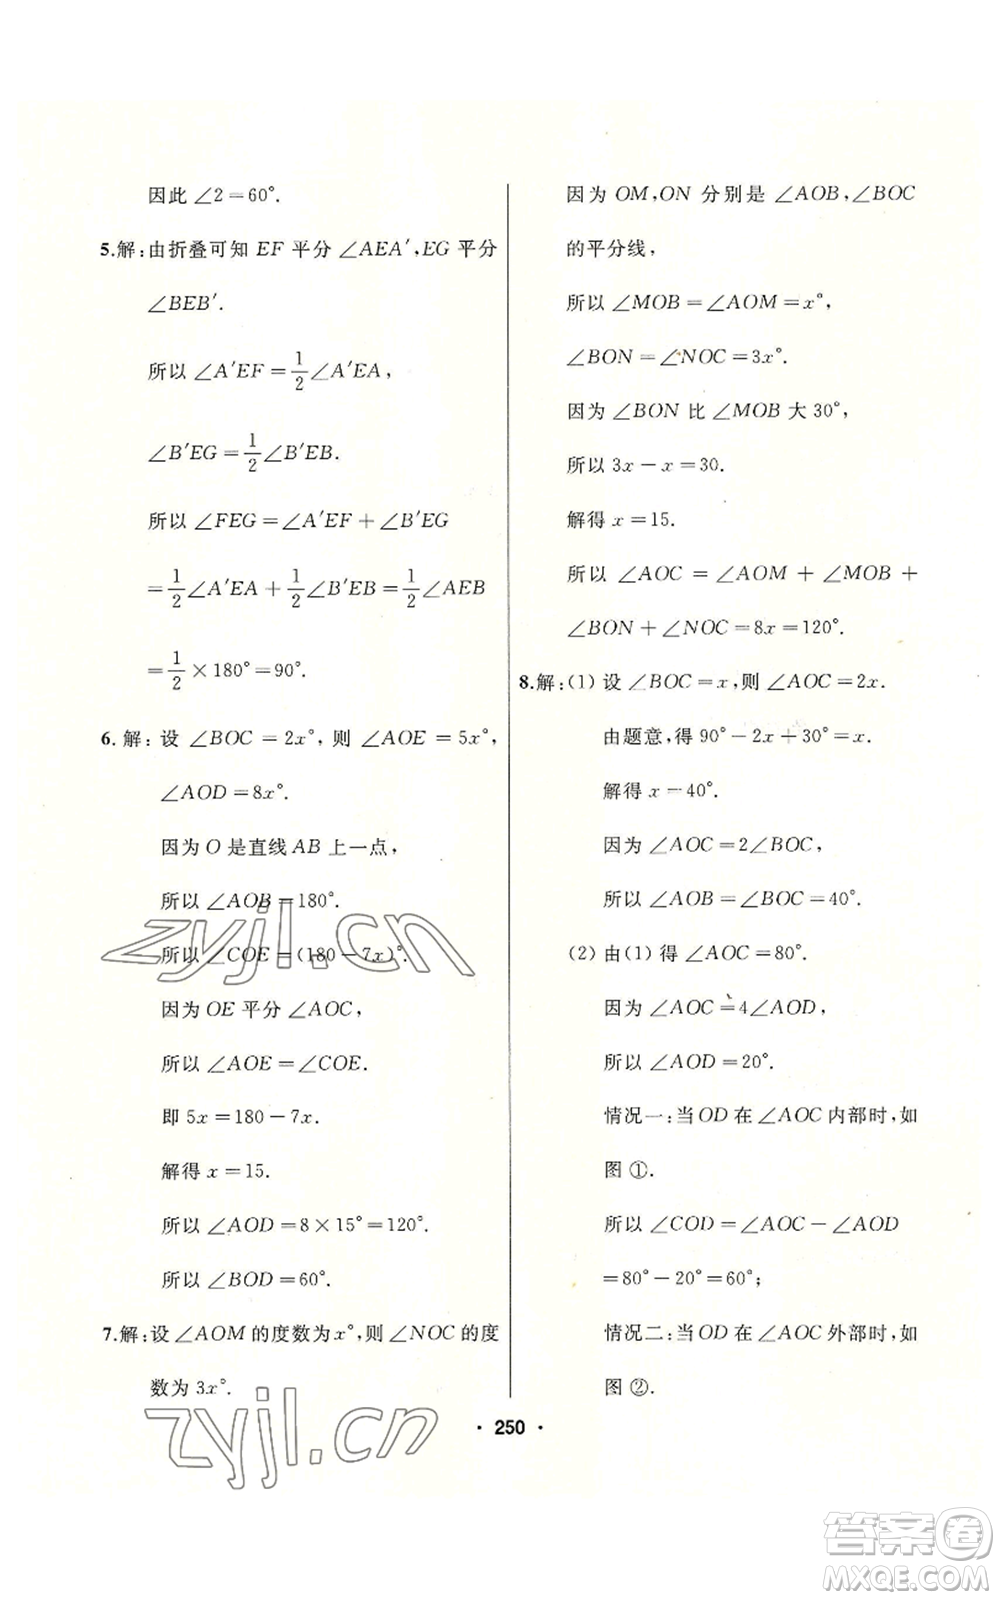 因此 ∠2=60°.
5.解:由折叠可知 EF 平分 ∠AEA′,EG 平分
∠BEB′.
所以 ∠A′EF=1/2∠A′EA,
∠B′EG=1/2∠B′EB.
所以 ∠FEG=∠A′EF+∠B′EG
=1/2∠A′EA+1/2∠B′EB=1/2∠AEB
=1/2×180°=90°.
6.解:设 ∠BOC=2x°,则 ∠AOE=5x°,
∠AOD=8x°.
因为 O 是直线 AB 上一点,
所以 ∠AOB=180°.
所以 ∠COE=(180-7x)°.
因为 OE 平分 ∠AOC,
所以 ∠AOE=∠COE.
即 5x=180-7x.
解得 x=15.
所以 ∠AOD=8×15°=120°.
所以 ∠BOD=60°.
7.解:设 ∠AOM 的度数为 x°,则 ∠NOC 的度
数为 3x°.
因为 OM,ON 分别是 ∠AOB,∠BOC
的平分线,
所以 ∠MOB=∠AOM=x°,
∠BON=∠NOC=3x°.
因为 ∠BON 比 ∠MOB 大 30°,
所以 3x-x=30.
解得 x=15.
所以 ∠AOC=∠AOM+∠MOB+
∠BON+∠NOC=8x=120°.
8.解:(1) 设 ∠BOC=x,则 ∠AOC=2x.
由题意,得 90°-2x+30°=x.
解得 x=40°.
因为 ∠AOC=2∠BOC,
所以 ∠AOB=∠BOC=40°.
(2) 由(1) 得 ∠AOC=80°.
因为 ∠AOC=4∠AOD,
所以 ∠AOD=20°.
情况一:当 OD 在 ∠AOC 内部时,如
图 ①.
所以 ∠COD=∠AOC-∠AOD
=80°-20°=60°;
情况二:当 OD 在 ∠AOC 外部时,如
图 ②.
· 250 ·
zyjl.cn
zyjl.cn
答案卷
MXQE.COM